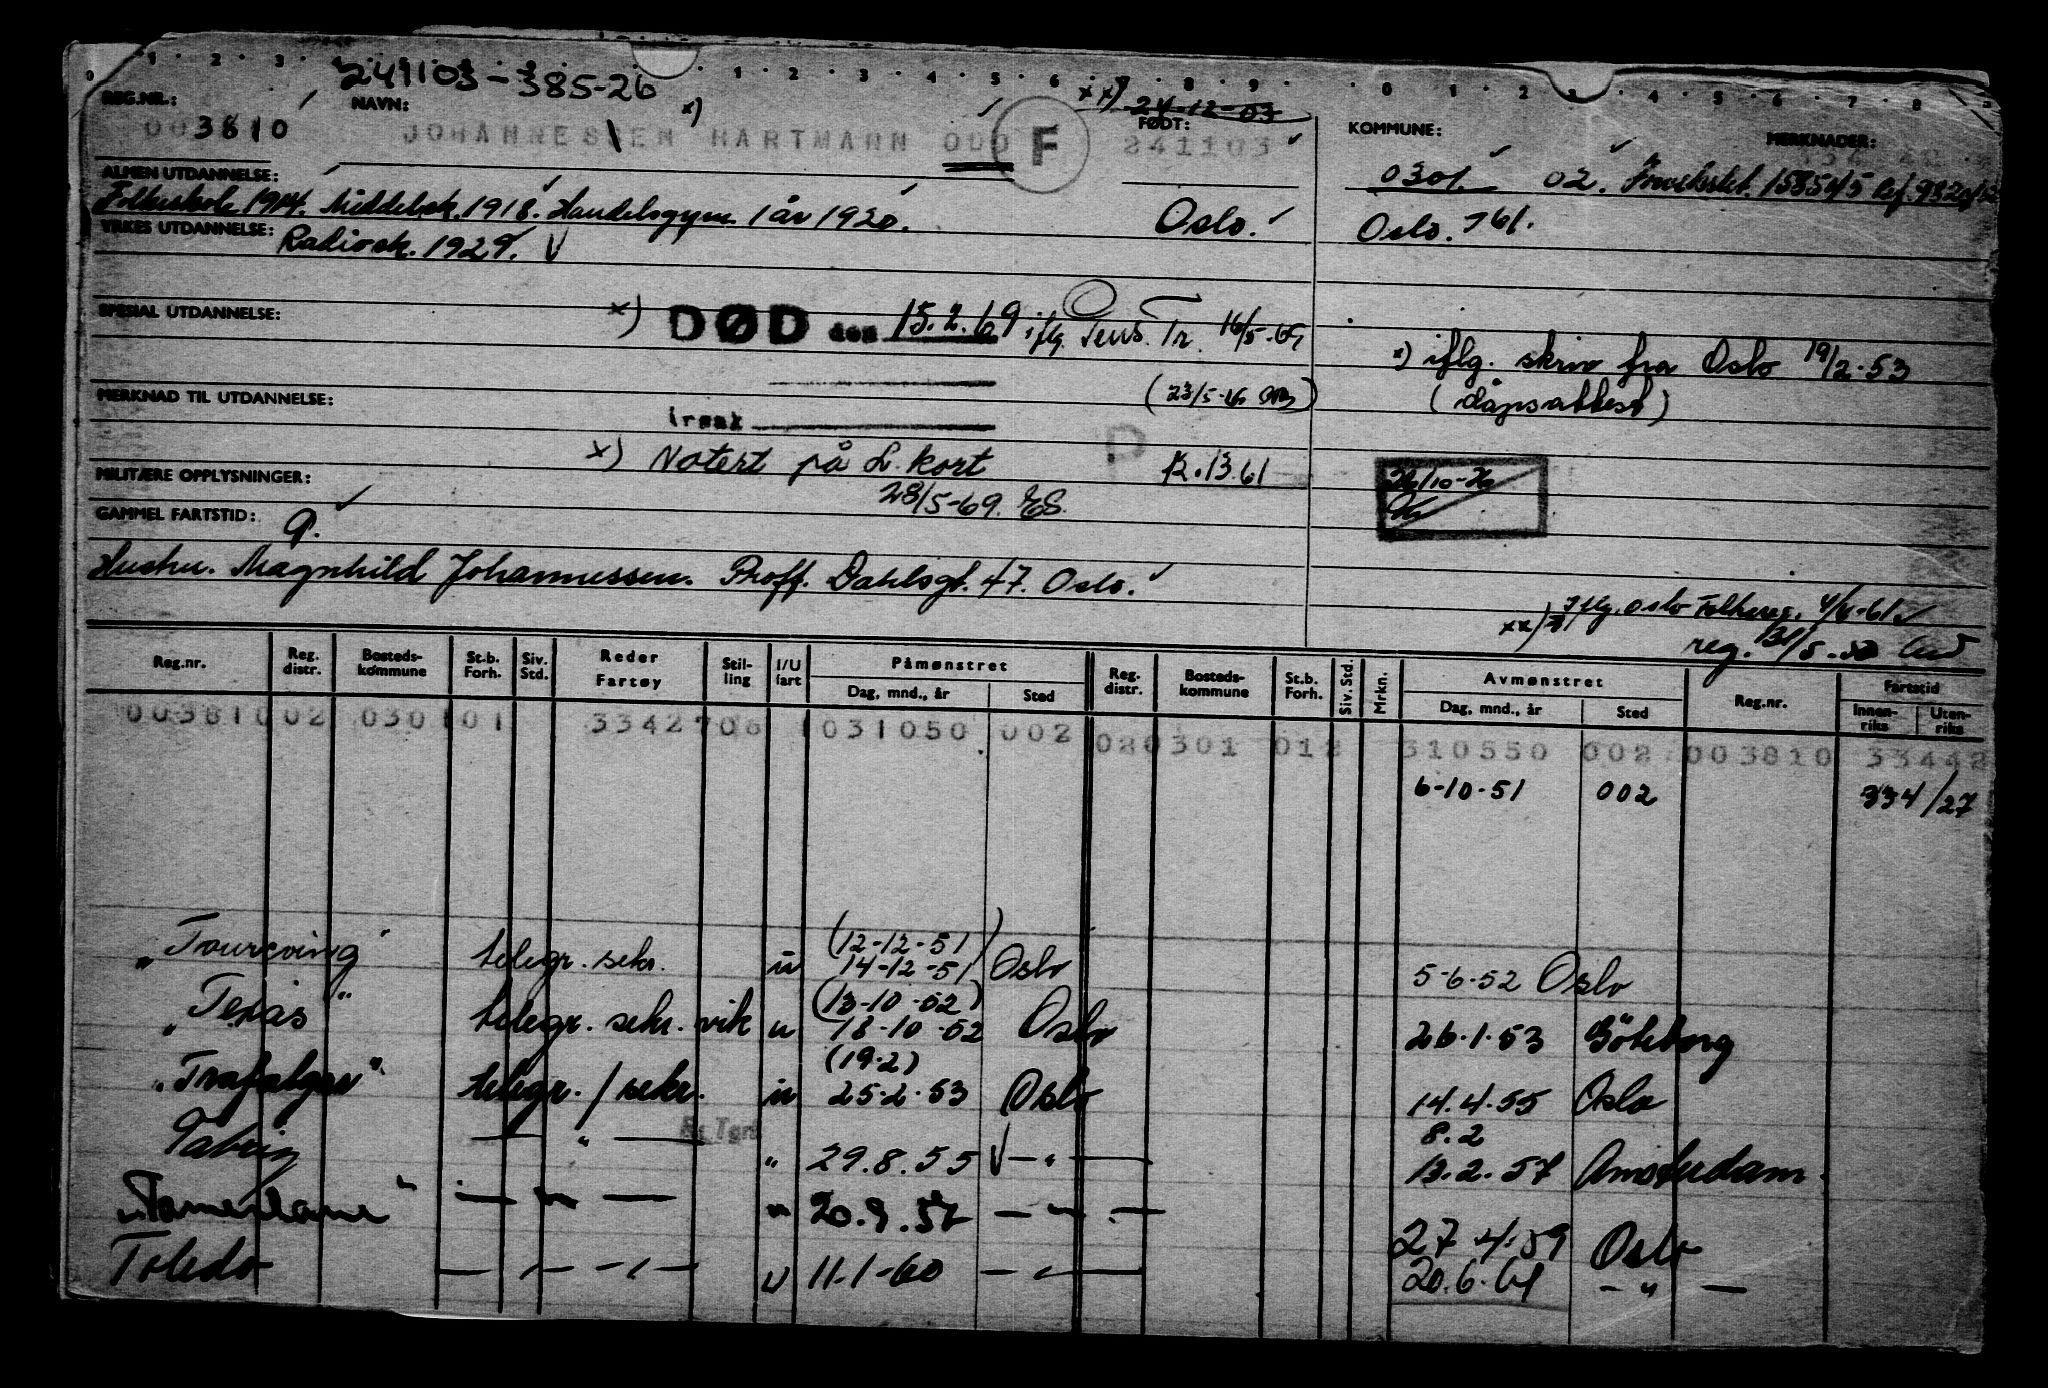 241103-385-26
REG.NR.: NAVN: x) xx) 24-12-03 FØDT: KOMMUNE: MERKNADER:
003810 JOHANNESSEN HARTMANN ODD F 241103
0301 02.
ALMEN UTDANNELSE:
Folkeskole 1914. Middelsk. 1918. Handelsgym. 1 år 1920. Oslo. Oslo. 761.
YRKES UTDANNELSE: Radiosk. 1929.
SPESIAL UTDANNELSE: x) DØD den 15.2.69 iflg. Tr. 16/5-69
x) iflg. skriv fra Oslo 19/2-53
(dåpsattest)
MERKNAD TIL UTDANNELSE:
årsak
x) Notert på L. kort R.13.61
MILITÆRE OPPLYSNINGER: 28/5-69. ES.
P
GAMMEL FARTSTID: 9.
Hustru. Magnhild Johannessen. Proff. Dahlsgt. 47. Oslo.
xx) Iflg. Oslo Folkereg.
Reg.nr. Reg. distr. Bosteds-kommune St.b. Forh. Siv. Std. Reder Fartøy Stil-ling I/U fart Påmønstret Dag, mnd., år Sted Reg. distr. Bosteds-kommune St.b. Forh. Siv. Std. Mrkn. Avmønstret Dag, mnd., år Sted Reg.nr. Fartstid Innen-riks Uten-riks
003810 02 0301 01 3342706 1 031050 002 020301 012 310550 002 003810 33442
6-10-51 002 334/27
(12-12-51)
"Tourcoing" telegr. sekr. u 14-12-51 Oslo 5-6-52 Oslo
(13-10-52)
"Texas" telegr. sekr. vik u 18-10-52 Oslo 26.1.53 Göteborg
(19-2)
"Trafalgar" telegr./sekr. u 25-2-53 Oslo 14.4.55 Oslo
8.2
Tabriz — " — " 29.8.55 — " — 13.2.57 Amsterdam.
"Tamerlane" — " — " 20.9.57 — " — 27.4.59 Oslo
Toledo — " — u 11.1-60 — " — 20.6.61 — " —